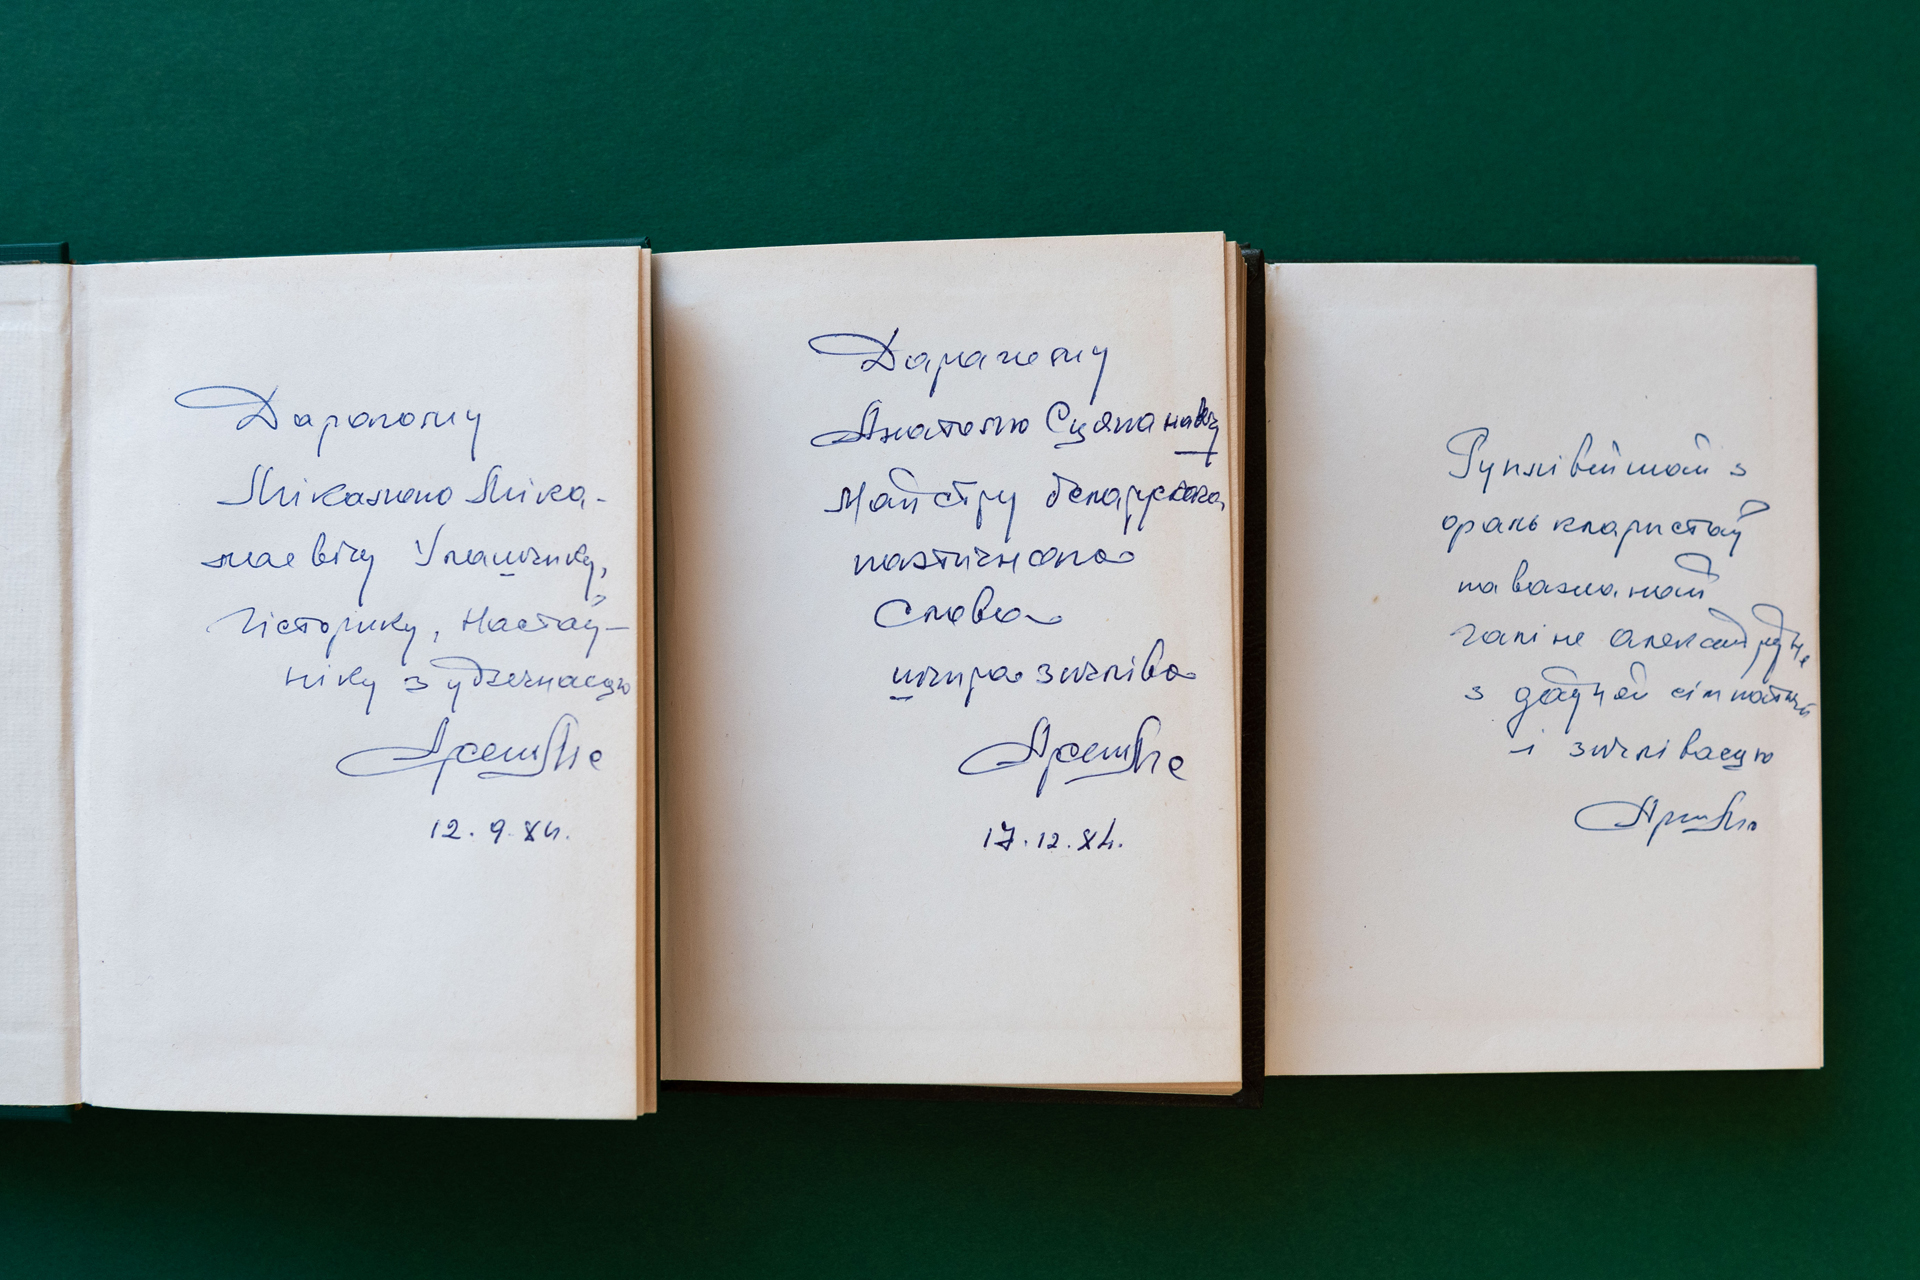 Дарагому
Мікалаю Міка-
лаевічу Улашчыку,
Гісторыку, Настаў-
ніку з удзячнасцю
Арсеннева
12.9.84.
Дарагому
Анатолю Сцяпанавічу
Майстру беларускага
паэтычнага
слова
шчыра зычліва
17.12.84.
Руплівейшай з
фралькларыстаў
паважанай
Галіне Александраўне
з даўняй сімпатыяй
і зычлівасцю